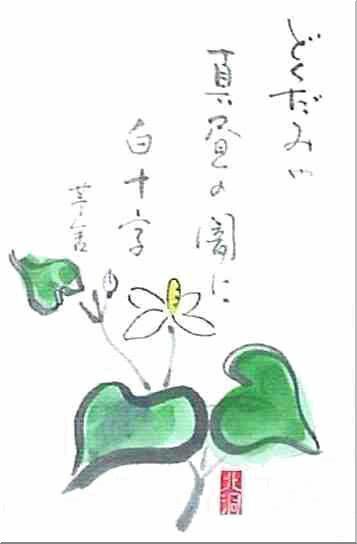 どくだみや
真昼の闇に
白十字
茅舎